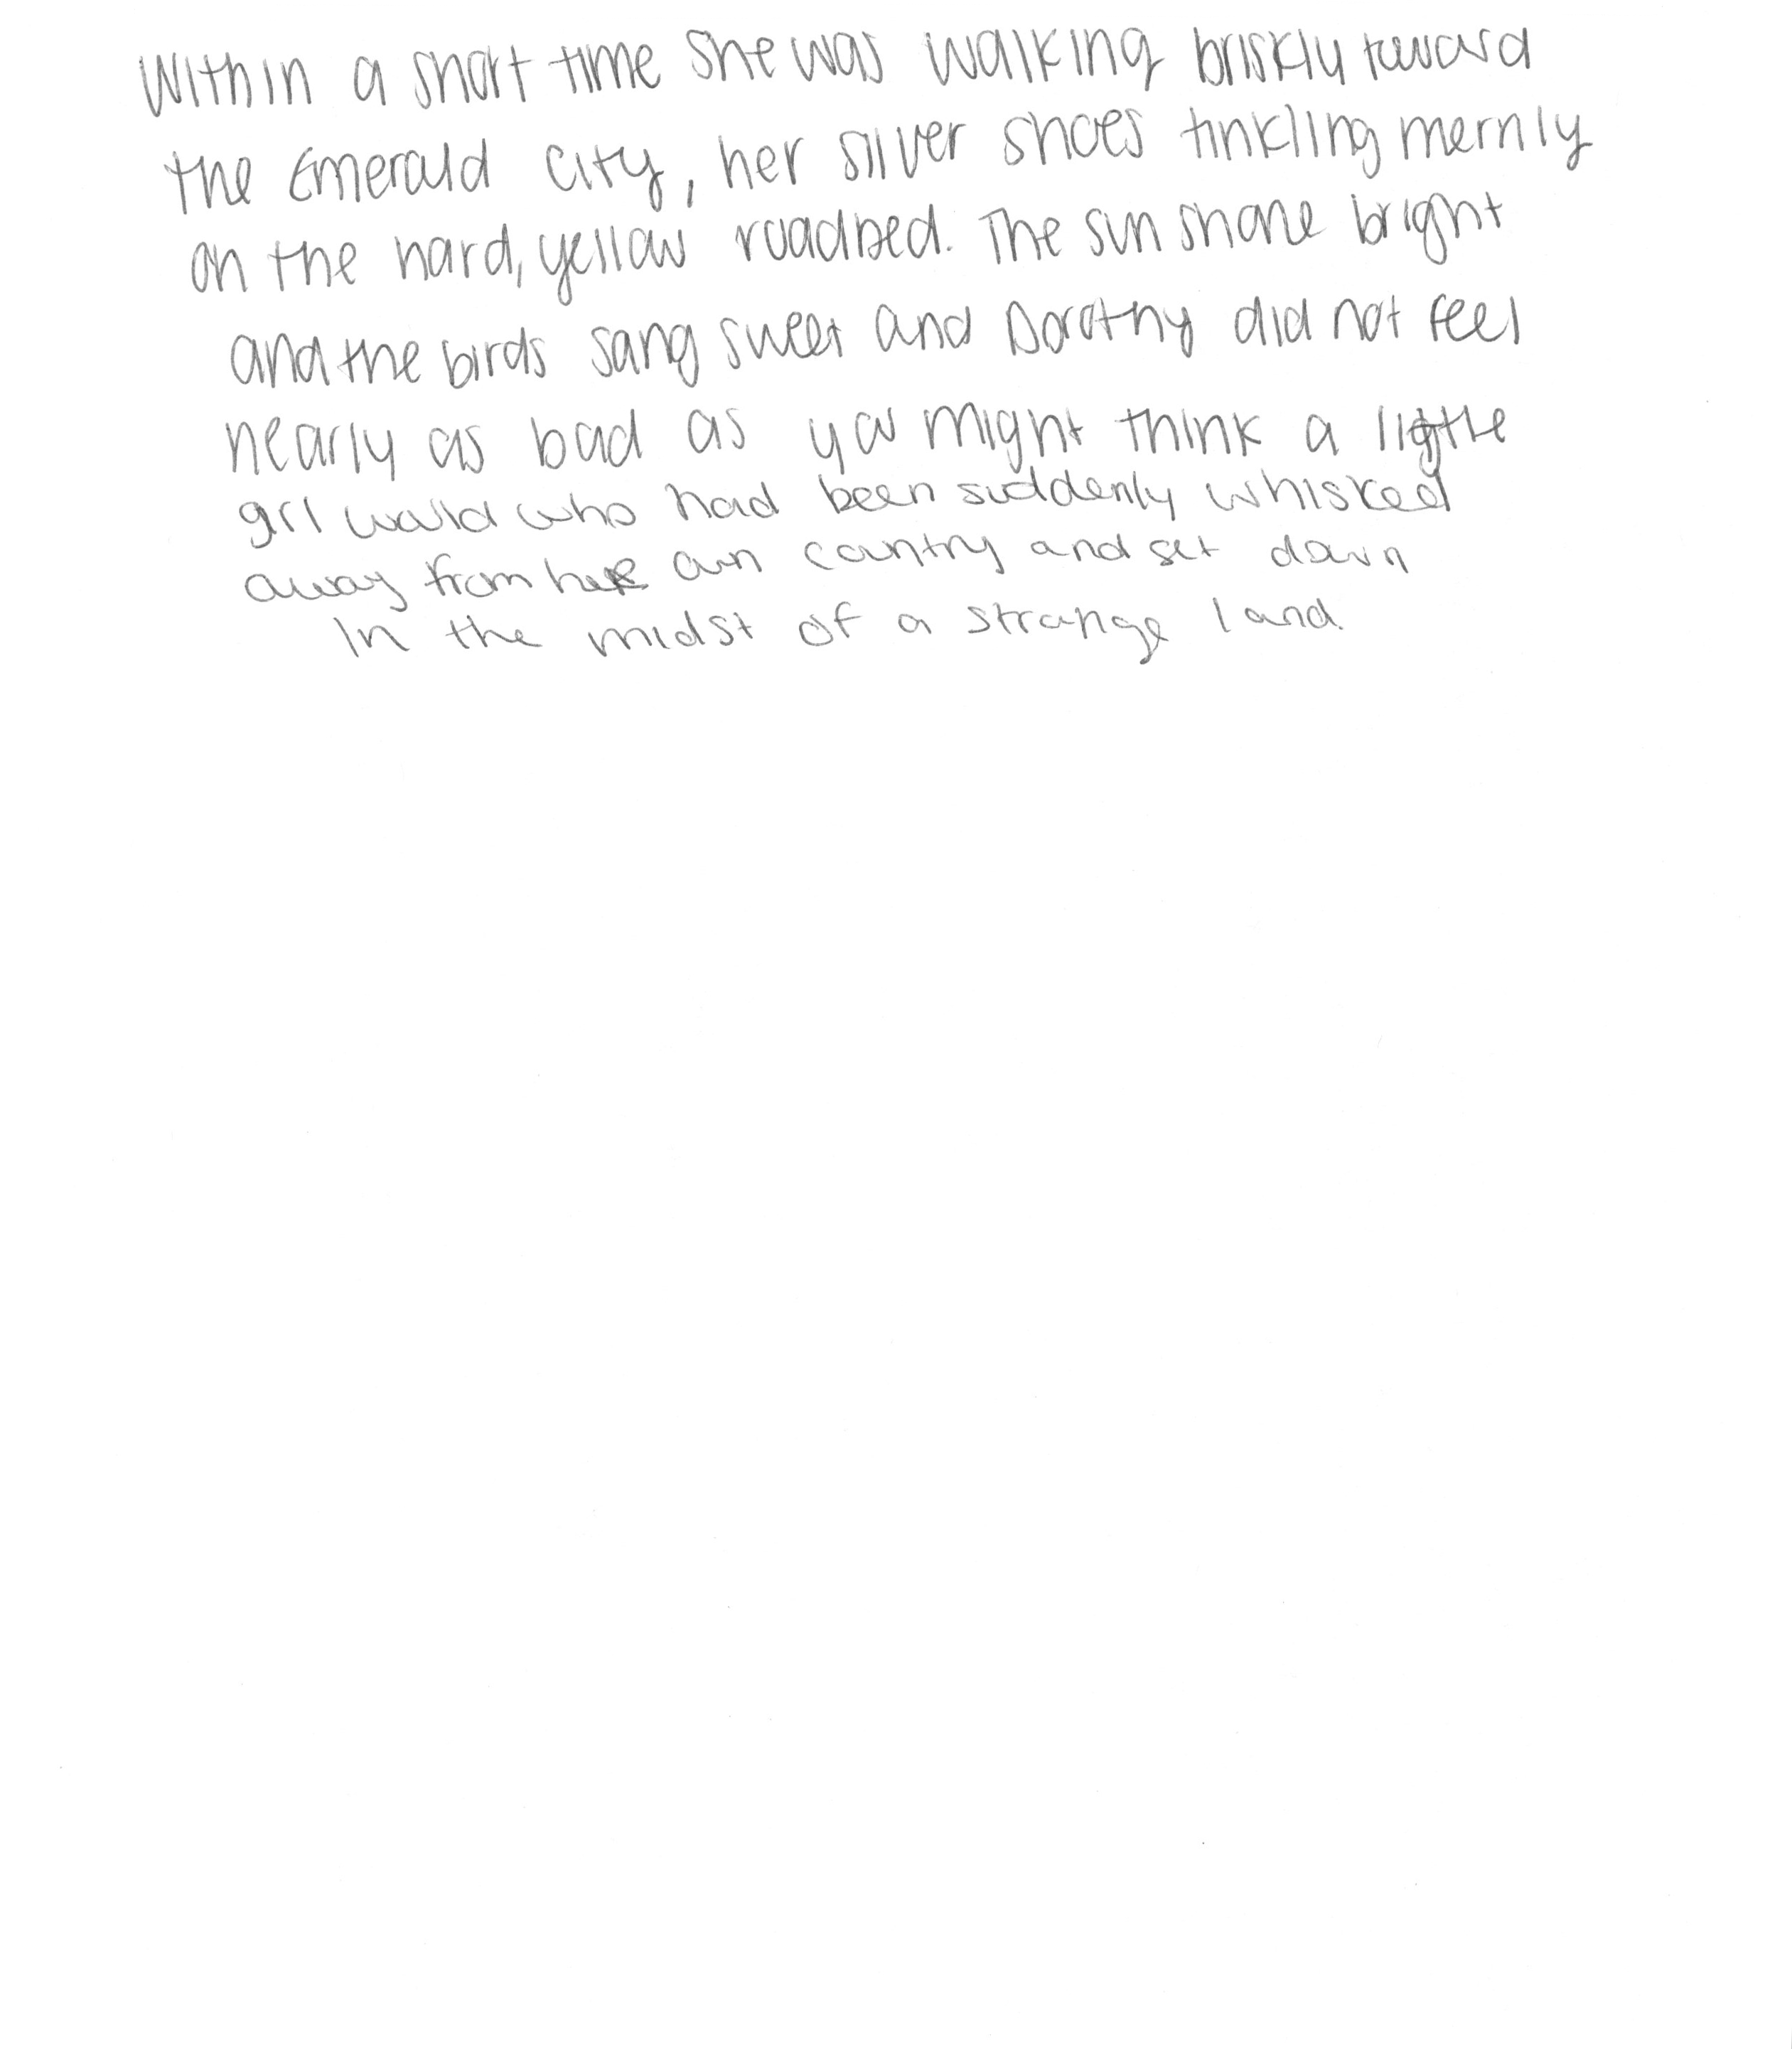 Within a short time she was walking briskly toward
the Emerald City, her silver shoes tinkling merrily
on the hard, yellow roadbed. The sun shone bright
and the birds sang sweet and Dorothy did not feel
nearly as bad as you might think a little
girl would who had been suddenly whisked
away from her own country and set down
in the midst of a strange land.